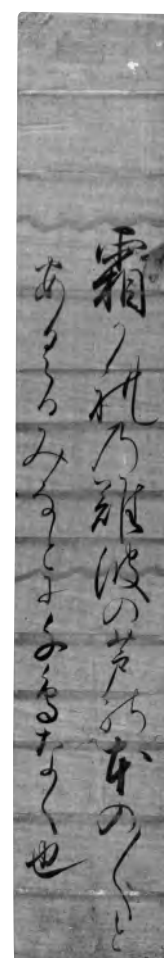 霜かれ乃難波の芦能本の〱と
あくるみなとに千鳥なく也